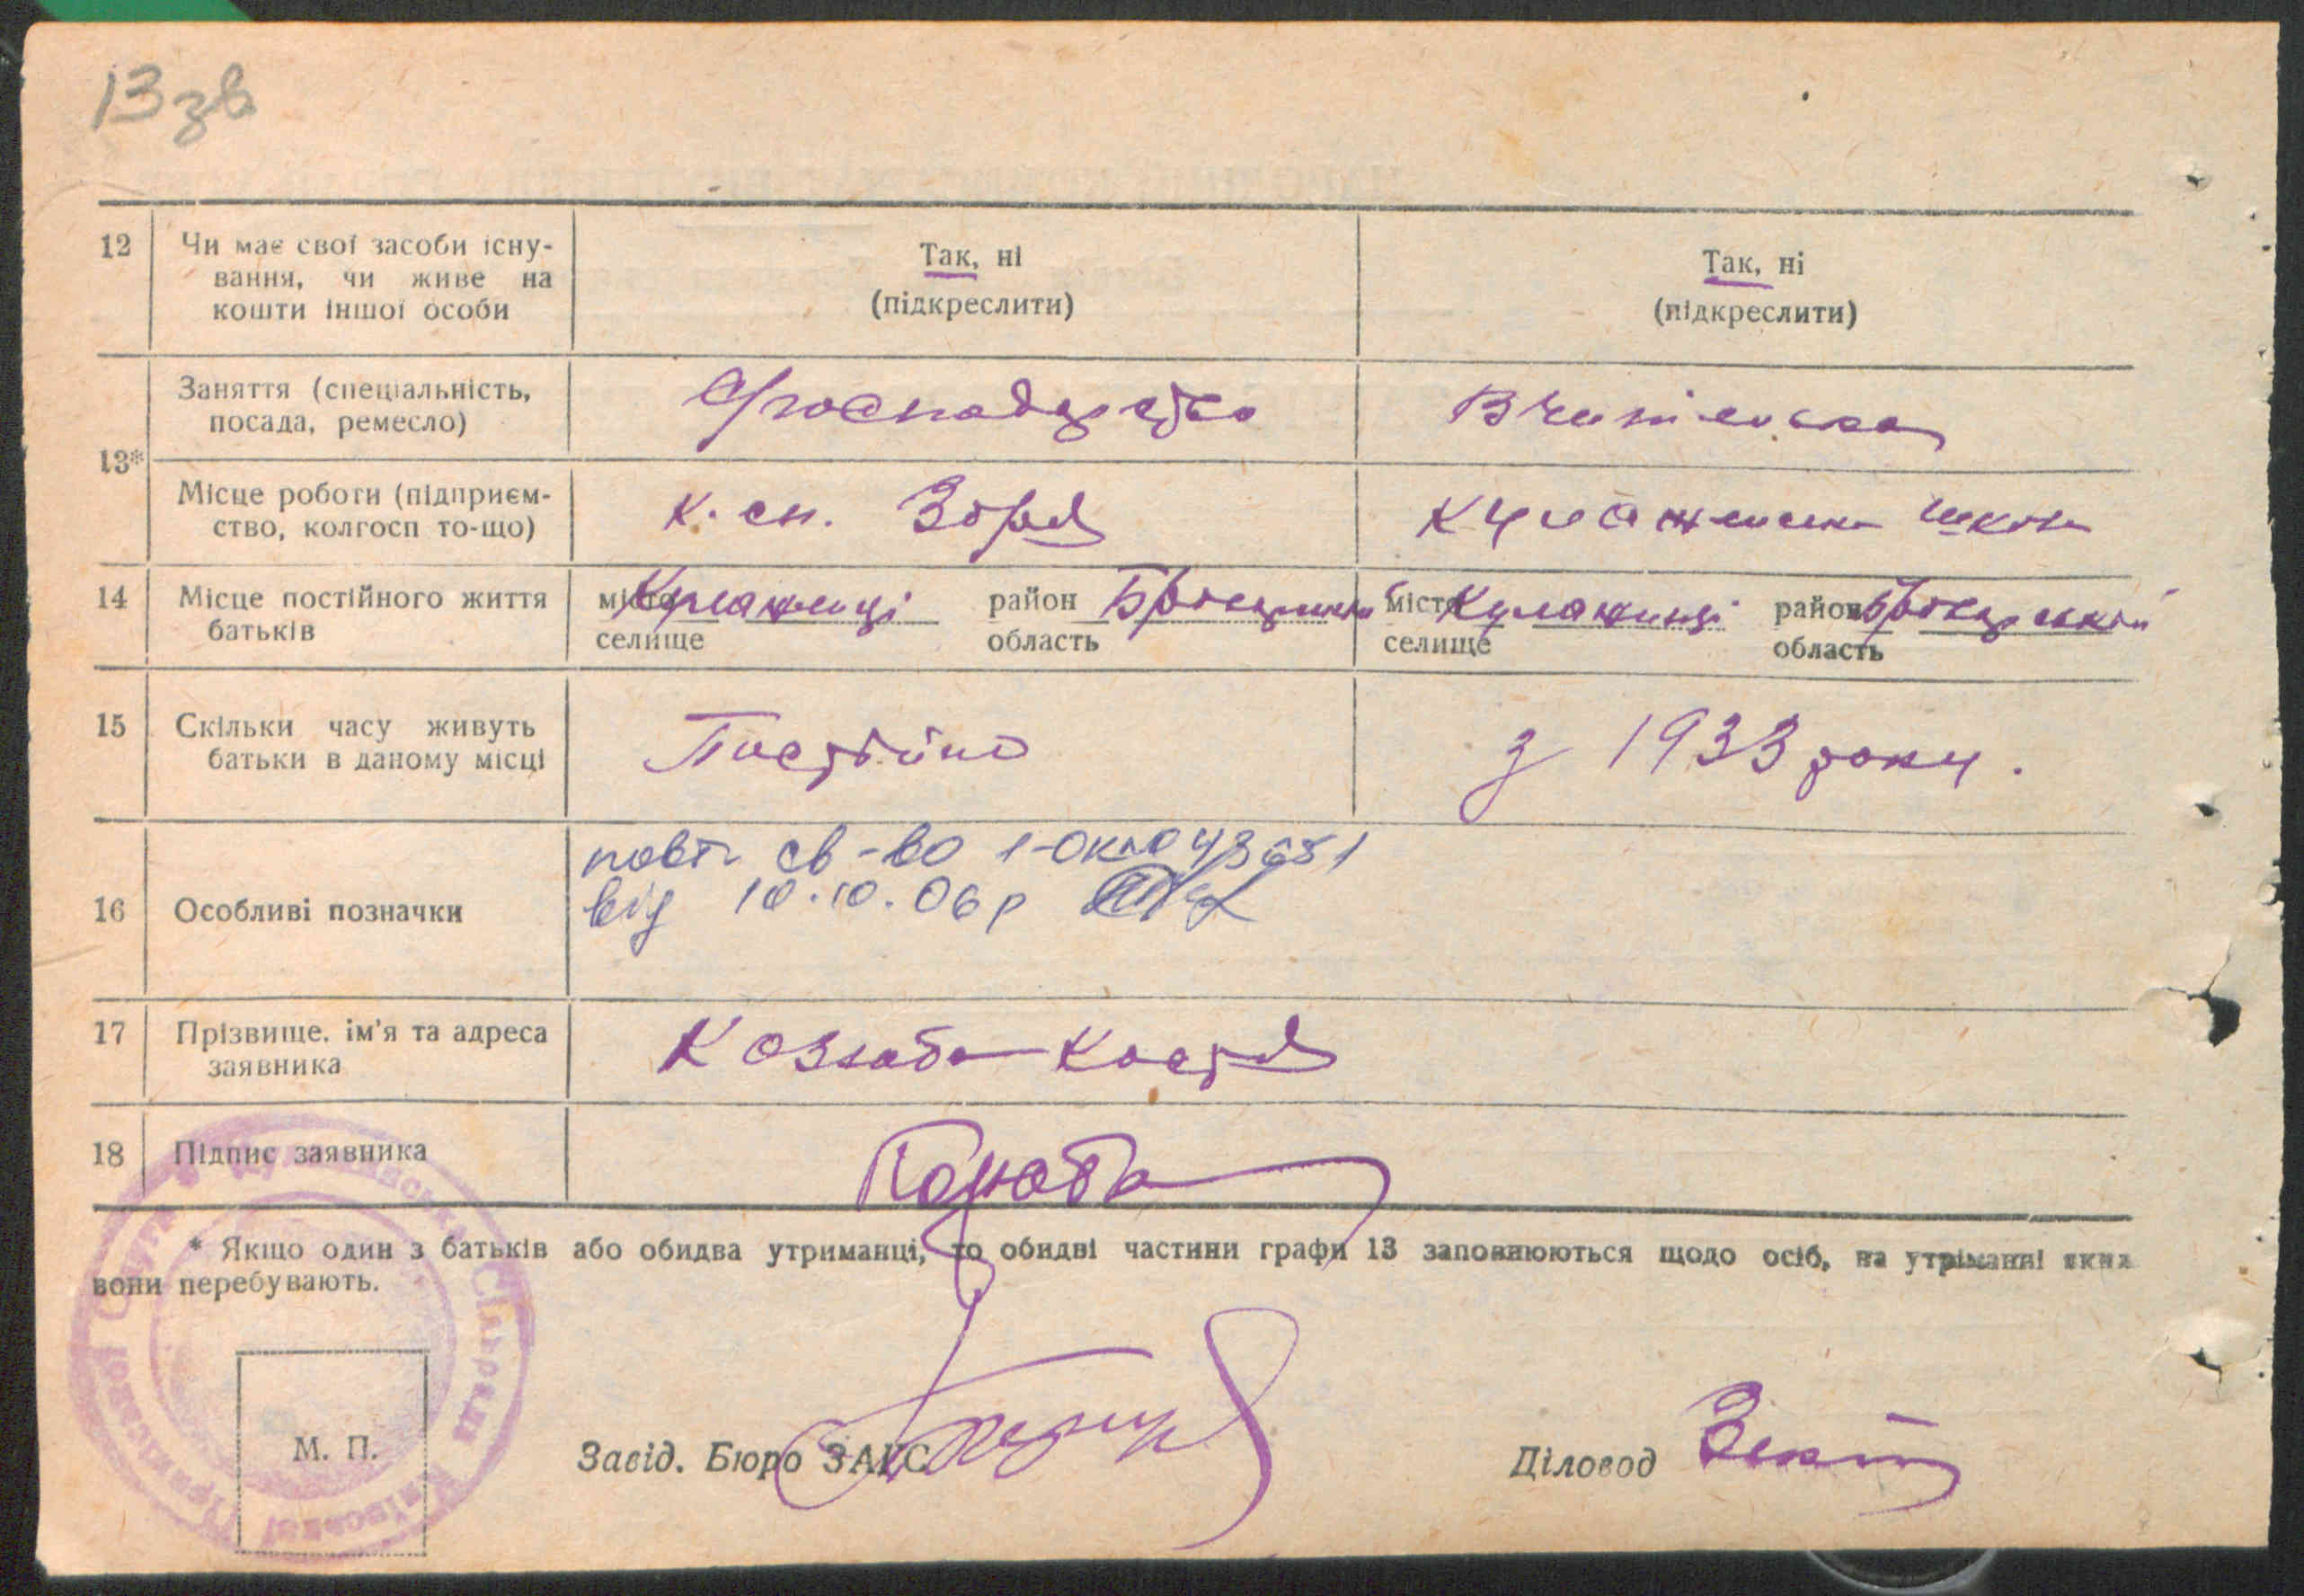 13 зв
12 Чи має свої засоби існу-
вання, чи живе на
кошти іншої особи
Так, ні
(підкреслити)
Так, ні
(підкреслити)
13*
Заняття (спеціальність,
посада, ремесло)
Вчителька
Місце роботи (підприєм-
ство, колгосп то-що)
к. сп. Зоря
школа
14 Місце постійного життя
батьків
місто Кулажинці район
селище область
місто Кулажинці район
селище область
15 Скільки часу живуть
батьки в даному місці
Постійно
з 1933 року.
16 Особливі позначки
повт. св-во
від 10.10.06р
17 Прізвище, ім'я та адреса
заявника
Костя
18 Підпис заявника
* Якщо один з батьків або обидва утриманці, то обидві частини графи 13 заповнюються щодо осіб, на утриманні яких
вони перебувають.
М. П.
Завід. Бюро ЗАКС
Діловод